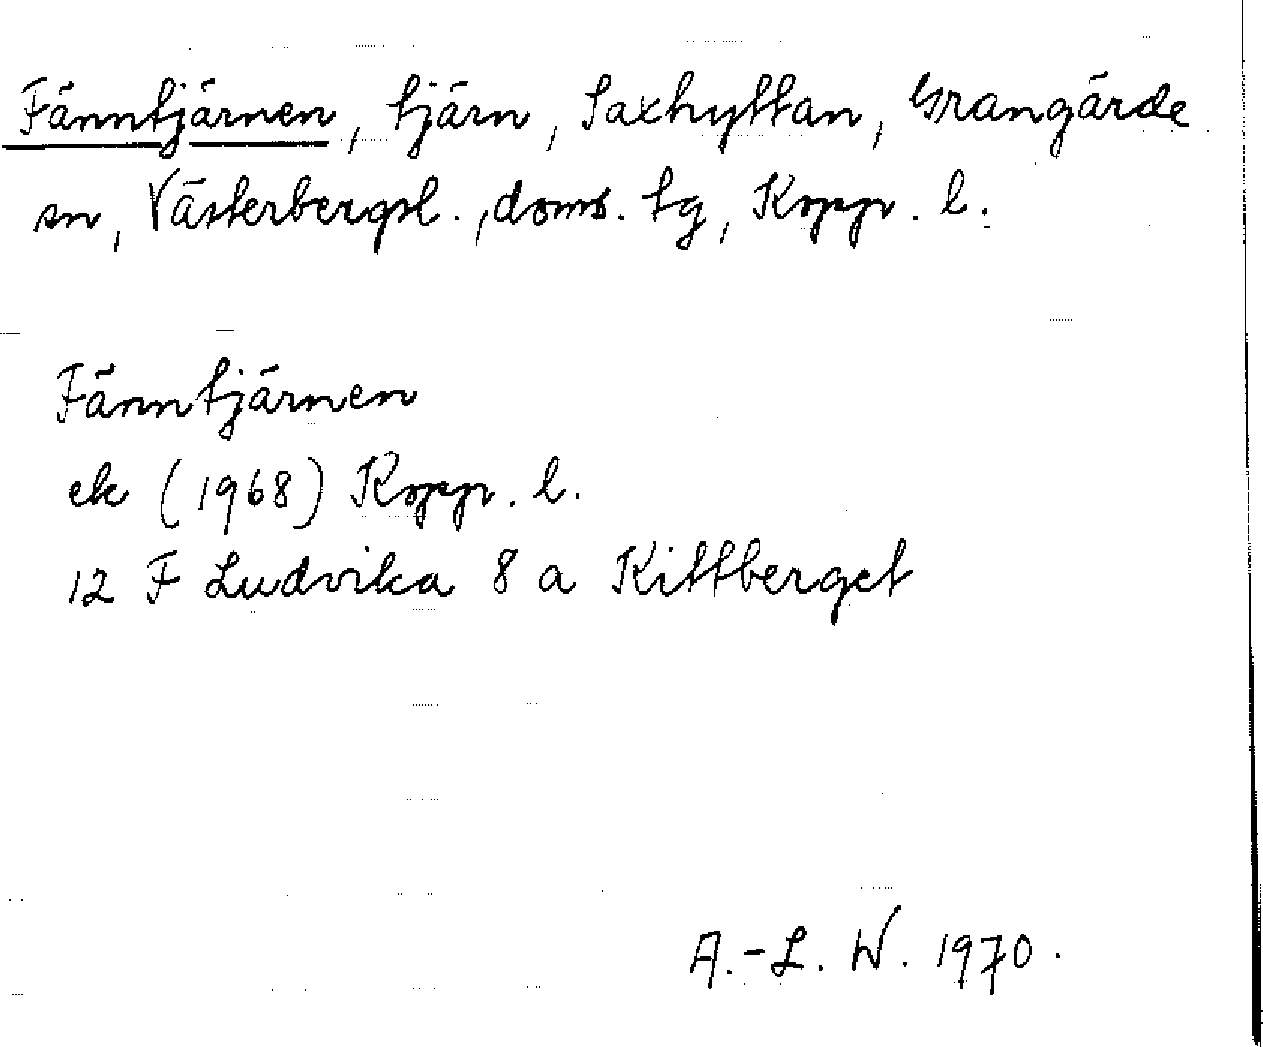 Fänntjärnen, tjärn, Saxhyttan, Grangärde
sn, Västerbergsl., doms. tg, Kopp. l.
Fänntjärnen
ek (1968) Kopp. l.
12 F Ludvika 8 a Kittberget
A.-L. W. 1970.